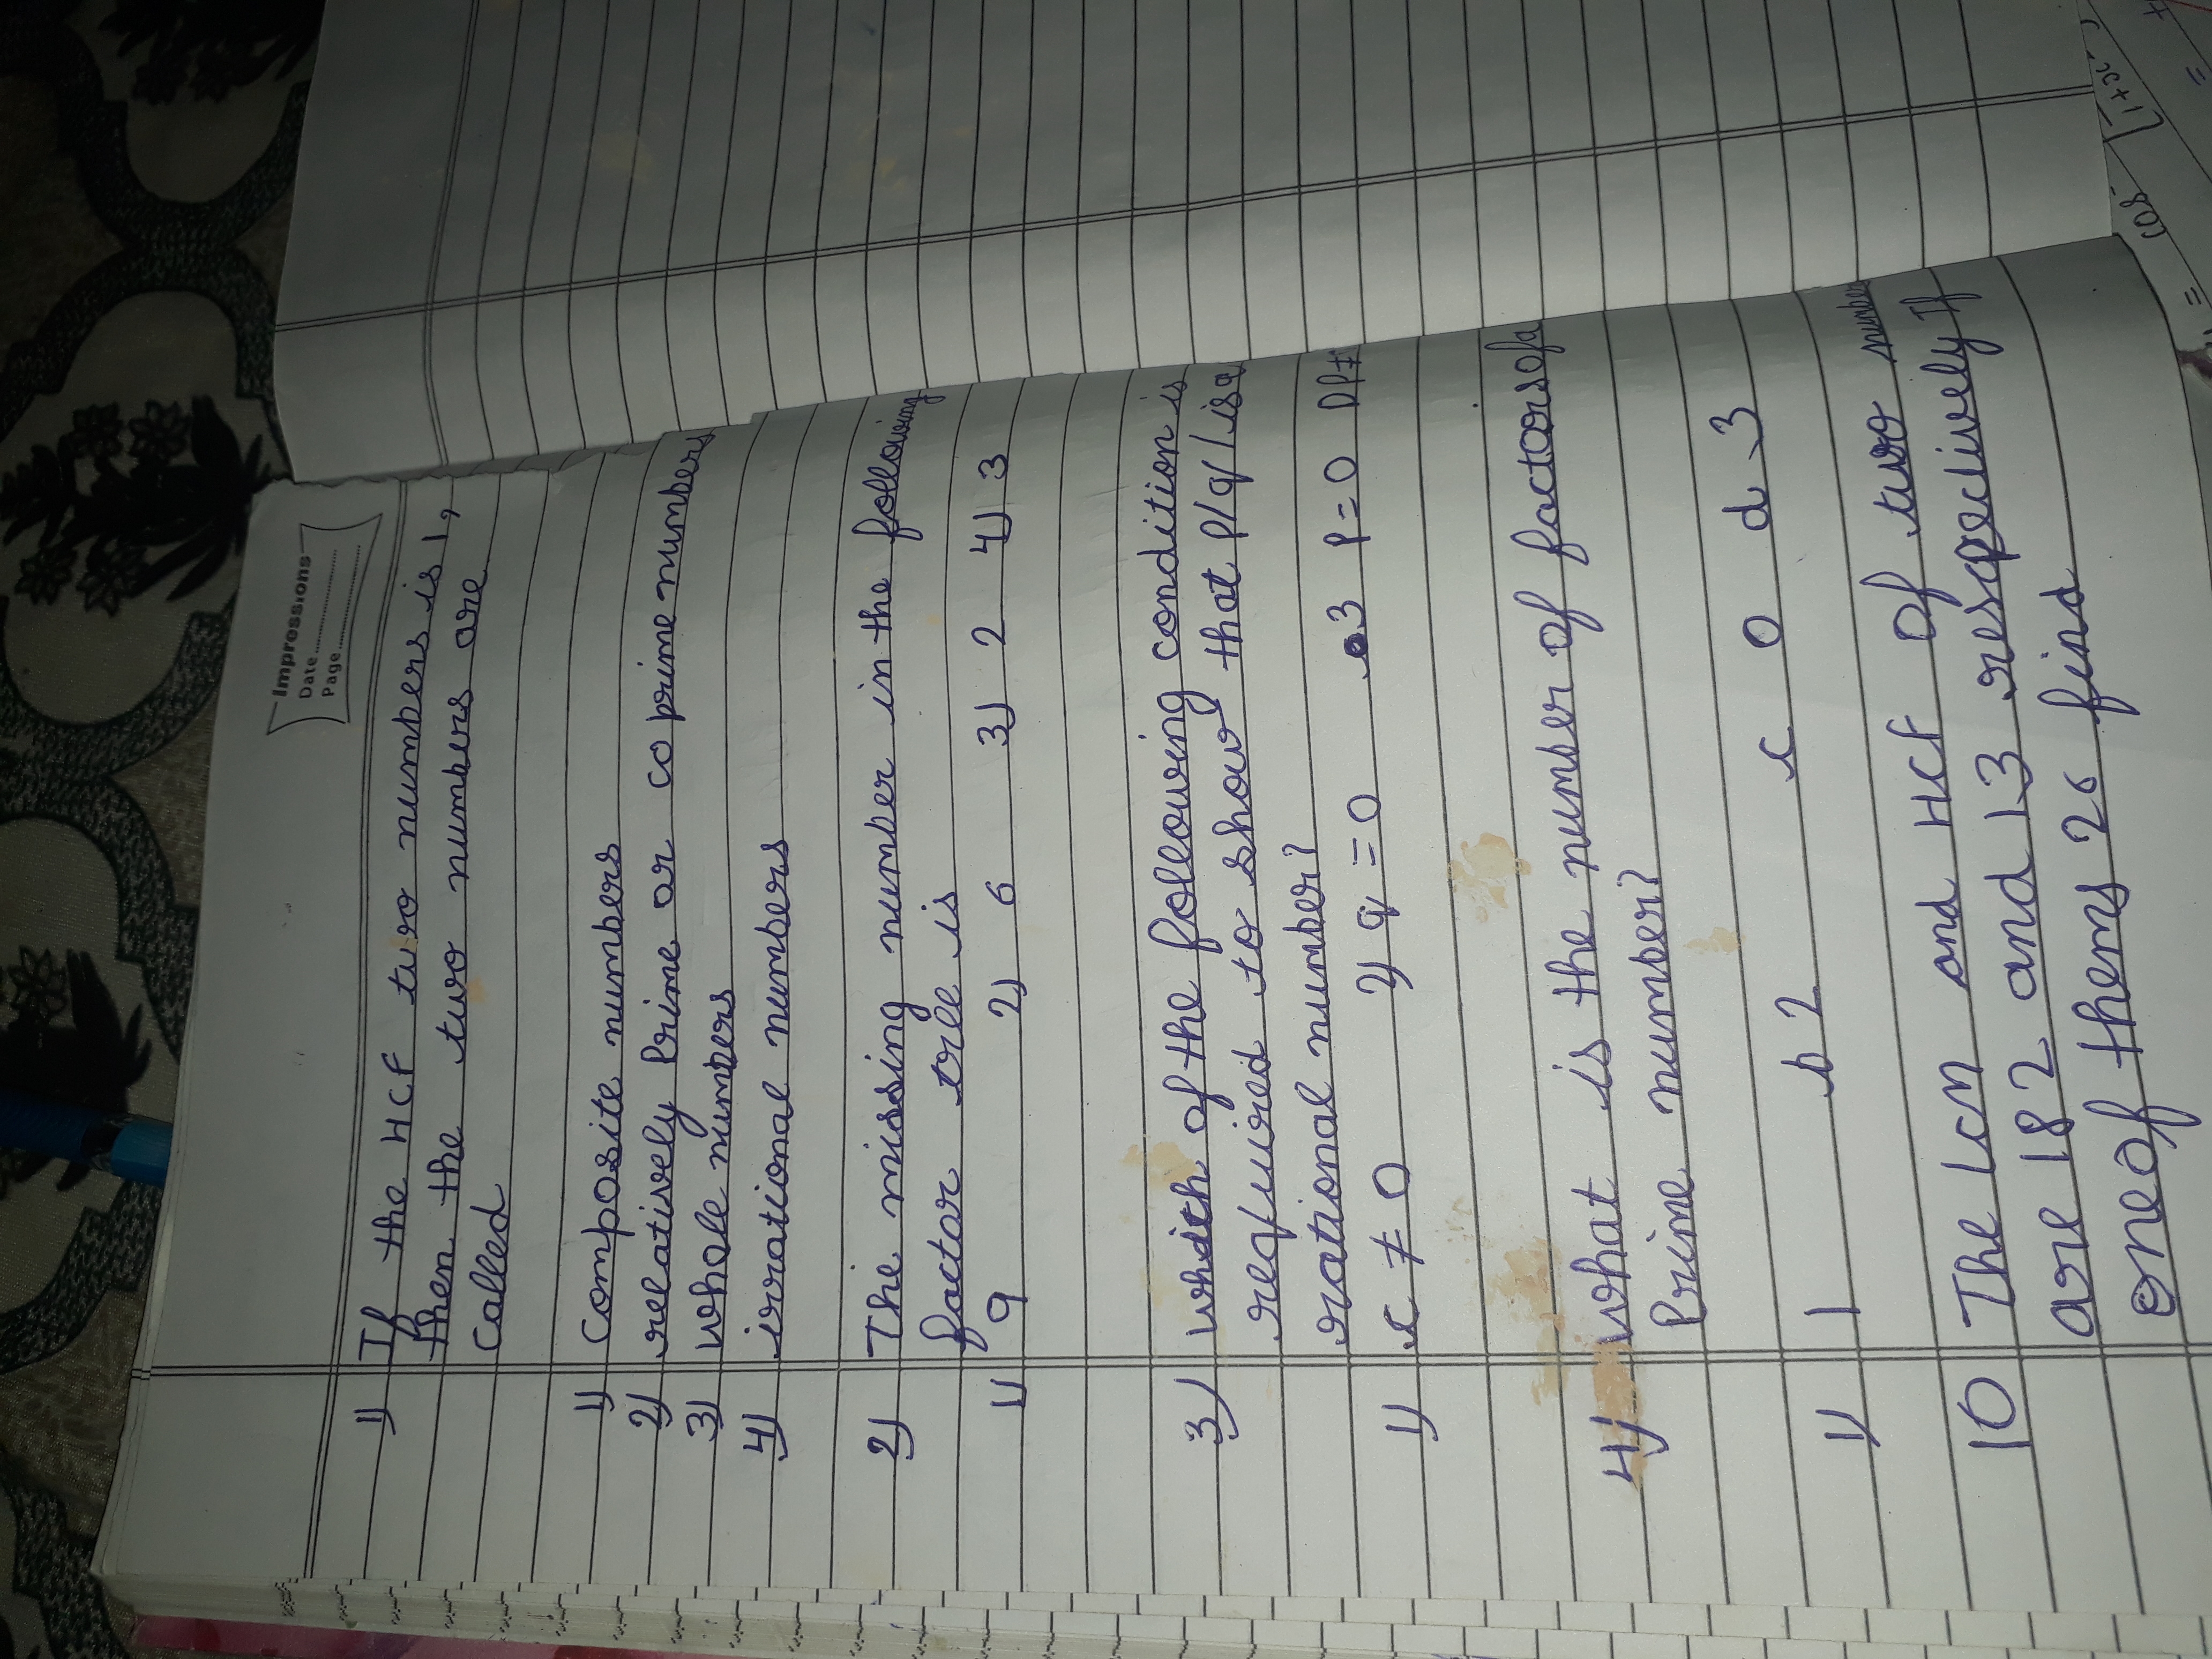 Impressions
Date
Page
1) If the HCF two numbers is 1,
then the two numbers are
called
1) composite numbers
2) relatively Prime or co prime numbers
3) whole numbers
4) irrational numbers
2) The missing number in the following
factor tree is
1) 9 2) 6 3) 2 4) 3
3) which of the following condition is
required to show that p/q/is a
rational number?
1) c ≠ 0 2) q = 0 3 P = 0 DP≠
4) what is the number of factorsofa
Prime number?
1) 1 b 2 c 0 d 3
10 The LCM and HCF Of two number
are 182 and 13 resqpectively If
oneof thems 26 find
cos⁻ [1+x
=